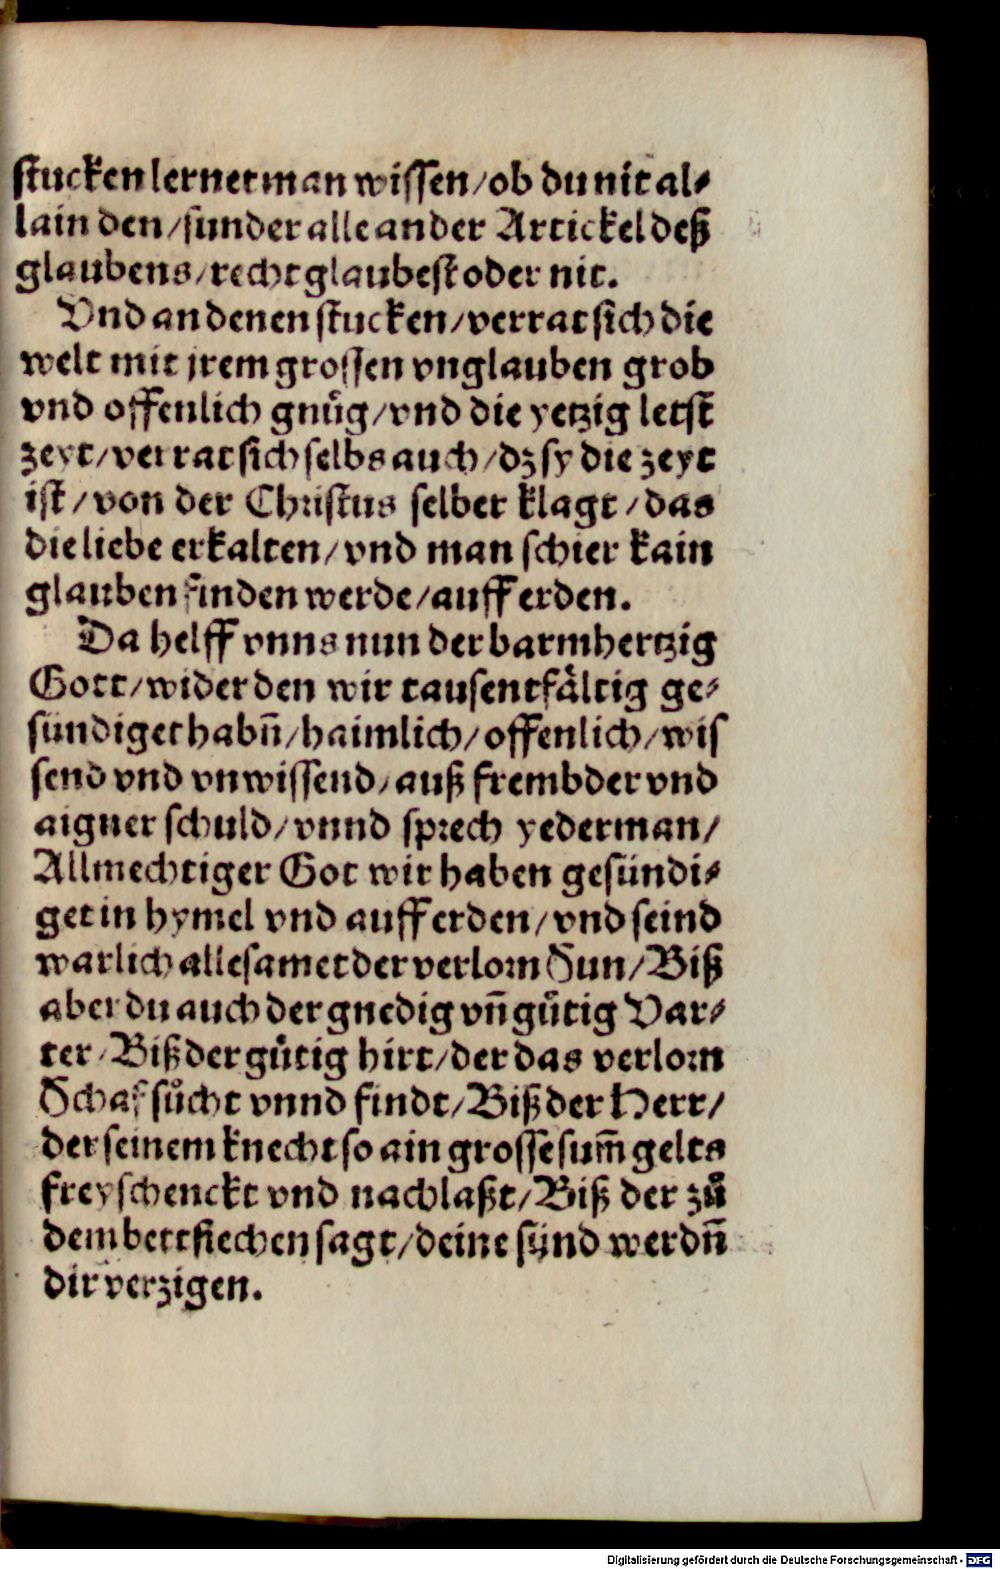 stucken lernet man wissen/ob du nit al⸗
lain den/sunder alle ander Artickel deß
glaubens/recht glaubest oder nit.
Vnd an denen stucken/verrat sich die
welt mit jrem grossen vnglauben grob
vnd offenlich gnůg/vnd die yetzig letst
zeyt/verrat sich selbs auch/dz sy die zeyt
ist/von der Christus selber klagt/das
die liebe erkalten/vnd man schier kain
glauben finden werde/auff erden.
Da helff vnns nun der barmhertzig
Gott/wider den wir tausentfältig ge⸗
sündiget habn̄/haimlich/offenlich/wis
send vnd vnwissend/auß frembder vnd
aigner schuld/vnnd sprech yederman/
Allmechtiger Got wir haben gesündi⸗
get in hymel vnd auff erden/vnd seind
warlich alle samet der verlorn Sun/Biß
aber du auch der gnedig vn̄ gůtig Vat⸗
ter/Biß der gůtig hirt/der das verlorn
Schaf sůcht vnnd findt/Biß der Herr/
der seinem knecht so ain grosse sum̄ gelts
frey schenckt vnd nachlaßt/Biß der zů
dem bettsiechen sagt/deine sünd werdn̄
dir verzigen.
Digitalisierung gefördert durch die Deutsche Forschungsgemeinschaft - DFG